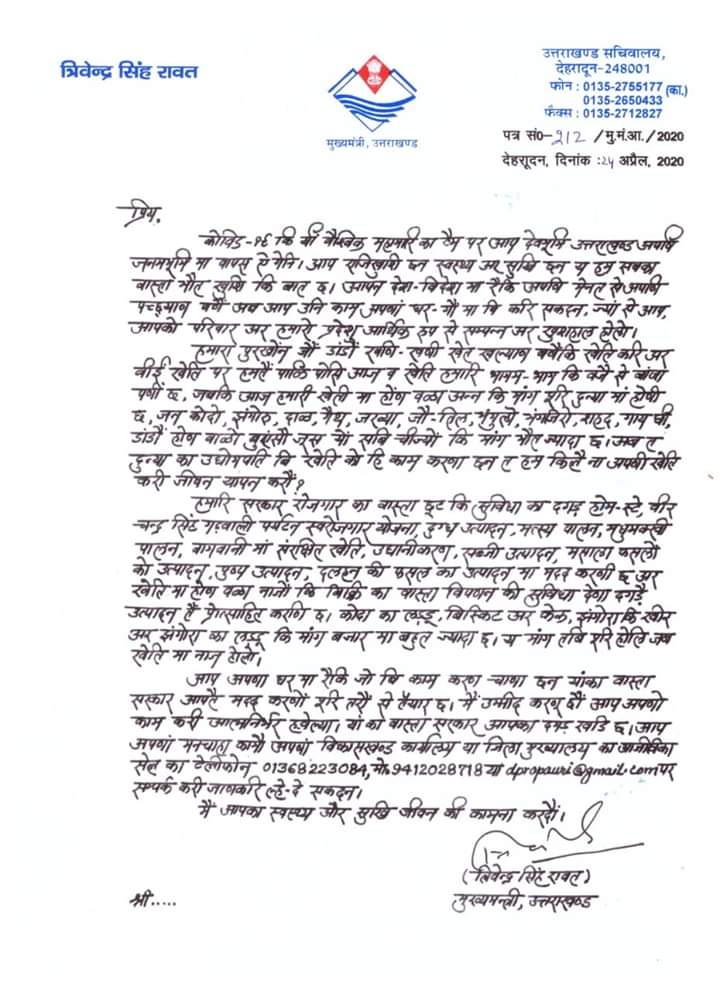 त्रिवेन्द्र सिंह रावत
मुख्यमंत्री, उत्तराखण्ड
उत्तराखण्ड सचिवालय,
देहरादून-248001
फोन : 0135-2755177
0135-2650433 (का.)
फैक्स : 0135-2712827
पत्र सं0-212/मु.मं.आ./2020
देहरादून, दिनांक :24 अप्रैल, 2020
प्रिय,
कोविड-१९ कि यीं वैश्विक महामारी का टैम पर आप देवभूमि उत्तराखण्ड अपणि
जनमभूमि मा वापस ऐ गेनि। आप राजिखुशि छन स्वस्थ्य अर सुखि छन य हम सबका
वास्ता भौत खुशि कि बात छ। आपन देश-विदेश मा रैकि अपणि मेनत से अपणि
पच्छ्याण बणै अब आप उनि काम अपणां घर-गौं मा बि करि सकदन, ज्यां से आप,
आपको परिवार अर हमारो प्रदेश आर्थिक रूप से सम्पन्न अर खुशहाल होलो।
हमारा पुरखोंन यौं डांडों खणि-खणी खेत खल्याण बणैकि खेति करि अर
वीई खेति पर हमतैं पालि पोसि आज व खेति हमारि भागम-भाग कि वजै से बांजा
पणीं छ, जबकि आज हमारी खेती मा होंण वळा अन्न कि मांग पूरि दुन्या मां होणी
छ, जन कोदो, झंगोरु, दाळ, गैथ, जख्या, जौ-तिल, भंगजिरो, शहद, गाय घी,
डांडौं होण वाळो बुरांसौ जूस यों सबि चीज्यों कि मांग भौत ज्यादा छ। अब त
दुन्या का उद्योगपति बि खेति को हि काम करणा छन त हम किलै ना अपणी खेति
करी जीवन यापन करौं?
हमारि सरकार रोजगार का वास्ता छूट कि सुविधा का दगड़ होम-स्टे, वीर
चन्द्र सिंह गढ़वाली पर्यटन स्वरोजगार योजना, दुग्ध उत्पादन, मत्स्य पालन, मधुमक्खी
पालन, बागवानी मां संरक्षित खेति, उद्यानीकरण, सब्जी उत्पादन, मसाला फसलों
को उत्पादन, पुष्प उत्पादन, दलहन की फसल का उत्पादन मा मदद करणी छ अर
खेति मा होण वळा नाजौ कि बिक्रि का वास्ता विपणन की सुविधा देणा दगड़ै
उत्पादन तैं प्रोत्साहित करणि छ। कोदा का लड्डू, बिस्किट अर केक, झंगोरा कि खीर
अर झंगोरा का लड्डू कि मांग बजार मा बहुत ज्यादा छ। य मांग तबि पूरि होलि जब
खेति मा नाज होलो।
आप अपणा घर मा रैकि जो बि काम करण चाणा छन यांका वास्ता
सरकार आपतै मदद करणौं पूरि तरौं से तैयार छ। मैं उम्मीद करणू छौं आप अपणो
काम करी आत्मनिर्भर ह्वेल्या। यां का वास्ता सरकार आपका दगड़ खड़ि छ। आप
अपणां मनचाहा कामौ अपणां विकासखण्ड कार्यालय या जिला मुख्यालय का आजीविका
सेल का टेलीफोन 01368223084, मो. 9412028718 या dpropauri@gmail.com पर
सम्पर्क करी जाणकरि ल्हे-दे सकदन।
मैं आपका स्वस्थ्य और सुखि जीवन की कामना करदौं।
(त्रिवेन्द्र सिंह रावत)
मुख्यमन्त्री, उत्तराखण्ड
श्री.....